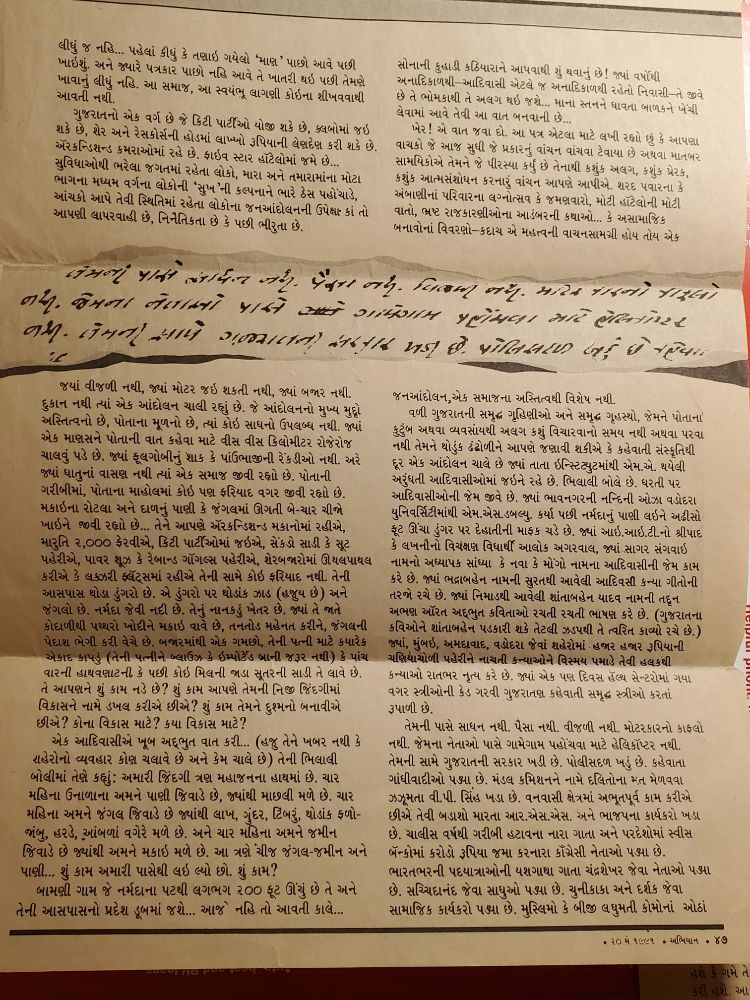 લીધું જ નહિ... પહેલાં કીધું કે તણાઇ ગયેલો ‘માણ’ પાછો આવે પછી
ખાઇશું. અને જ્યારે પત્રકાર પાછો નહિ આવે તે ખાતરી થઇ પછી તેમણે
ખાવાનું લીધું નહિ. આ સમાજ, આ સ્વયંભૂ લાગણી કોઇના શીખવવાથી
આવતી નથી.
ગુજરાતનો એક વર્ગ છે જે કિટી પાર્ટીઓ યોજી શકે છે, ક્લબોમાં જઇ
શકે છે, શેર અને રેસકોર્સની હોડમાં લાખ્ખો રૂપિયાની લેણદેણ કરી શકે છે.
ઍરકન્ડિશન્ડ કમરાઓમાં રહે છે. ફાઇવ સ્ટાર હૉટેલોમાં જમે છે...
સુવિધાઓથી ભરેલા જગતમાં રહેતા લોકો, મારા અને તમારામાંના મોટા
ભાગના મધ્યમ વર્ગના લોકોની ‘સુખ’ની કલ્પનાને ભારે ઠેસ પહોંચાડે,
આંચકો આપે તેવી સ્થિતિમાં રહેતા લોકોના જનઆંદોલનની ઉપેક્ષા કાં તો
આપણી લાપરવાહી છે, બિનૈતિકતા છે કે પછી ભીરુતા છે.
સોનાની કુહાડી કઠિયારાને આપવાથી શું થવાનું છે! જ્યાં વર્ષોથી
અનાદિકાળથી–આદિવાસી એટલે જ અનાદિકાળથી રહેતો નિવાસી–તે જીવે
છે તે ભોમકાથી તે અલગ થઇ જશે... માના સ્તનને ધાવતા બાળકને ખેંચી
લેવામાં આવે તેવી આ વાત બનવાની છે...
ખેર! એ વાત જવા દો. આ પત્ર એટલા માટે લખી રહ્યો છું કે આપણા
વાચકો જે આજ સુધી જે પ્રકારનું વાંચન વાંચવા ટેવાયા છે અથવા માતબર
સામયિકોએ તેમને જે પીરસ્યા કર્યું છે તેનાથી કશુંક અલગ, કશુંક પ્રેરક,
કશુંક આત્મસંશોધન કરનારું વાંચન આપણે આપીએ. શરદ પવારના કે
અંબાણીનાં પરિવારના લગ્નોત્સવ કે જમણવારો, મોટી હૉટેલોની મોટી
વાતો, ભ્રષ્ટ રાજકારણીઓના આડંબરની કથાઓ... કે અસામાજિક
બનાવોનાં વિવરણો–કદાચ એ મહત્ત્વની વાચનસામગ્રી હોય તોય એક
તેમની પાસે સાધન નથી. પૈસા નથી. વિજળી નથી. મોટર કારનો કાફલો
નથી. જેમના નેતાઓ પાસે ગામેગામ પહોંચવા માટે હેલિકોપ્ટર
નથી. તેમની સામે ગુજરાતની સરકાર ખડી છે. પોલિસદળ ખડું છે કહેવા
જ્યાં વીજળી નથી, જ્યાં મોટર જઇ શકતી નથી, જ્યાં બજાર નથી.
દુકાન નથી ત્યાં એક આંદોલન ચાલી રહ્યું છે. જે આંદોલનનો મુખ્ય મુદ્દો
અસ્તિત્વનો છે, પોતાના મૂળનો છે, ત્યાં કોઇ સાધનો ઉપલબ્ધ નથી. જ્યાં
એક માણસને પોતાની વાત કહેવા માટે વીસ વીસ કિલોમીટર રોજેરોજ
ચાલવું પડે છે. જ્યાં ફૂલગોબીનું શાક કે પાંઉભાજીની રેંકડીઓ નથી. અરે
જ્યાં ધાતુનાં વાસણ નથી ત્યાં એક સમાજ જીવી રહ્યો છે. પોતાની
ગરીબીમાં, પોતાના માહોલમાં કોઇ પણ ફરિયાદ વગર જીવી રહ્યો છે.
મકાઇના રોટલા અને દાળનું પાણી કે જંગલમાં ઊગતી બે-ચાર ચીજો
ખાઇને જીવી રહ્યો છે... તેને આપણે ઍરકન્ડિશન્ડ મકાનોમાં રહીએ,
મારુતિ ૨,૦૦૦ ફેરવીએ, કિટી પાર્ટીઓમાં જઇએ, સેંકડો સાડી કે સૂટ
પહેરીએ, પાવર શૂઝ કે રેબાન્ડ ગૉગલ્સ પહેરીએ, શેરબજારોમાં ઊથલપાથલ
કરીએ કે લક્ઝરી ફ્લૅટ્સમાં રહીએ તેની સામે કોઇ ફરિયાદ નથી. તેની
આસપાસ થોડા ડુંગરો છે. એ ડુંગરો પર થોડાંક ઝાડ (હજુય છે) અને
જંગલો છે. નર્મદા જેવી નદી છે. તેનું નાનકડું ખેતર છે. જ્યાં તે જાતે
કોદાળીથી પથ્થરો ખોદીને મકાઇ વાવે છે, તનતોડ મહેનત કરીને, જંગલની
પેદાશ ભેગી કરી વેચે છે. બજારમાંથી એક ગમછો, તેની પત્ની માટે ક્યારેક
એકાદ કાપડું (તેની પત્નીને બ્લાઉઝ કે ઇમ્પોર્ટેડ બ્રાની જરૂર નથી) કે પાંચ
વારની હાથવણાટની કે પછી કોઇ મિલની જાડા સૂતરની સાડી તે લાવે છે.
તે આપણને શું કામ નડે છે? શું કામ આપણે તેમની નિજી જિંદગીમાં
વિકાસને નામે ડખલ કરીએ છીએ? શું કામ તેમને દુશ્મનો બનાવીએ
છીએ? કોના વિકાસ માટે? કયા વિકાસ માટે?
એક આદિવાસીએ ખૂબ અદ્ભુત વાત કરી... (હજુ તેને ખબર નથી કે
શહેરોનો વ્યવહાર કોણ ચલાવે છે અને કેમ ચાલે છે) તેની ભિલાલી
બોલીમાં તેણે કહ્યું: અમારી જિંદગી ત્રણ મહાજનના હાથમાં છે. ચાર
મહિના ઉનાળાના અમને પાણી જિવાડે છે, જ્યાંથી માછલી મળે છે. ચાર
મહિના અમને જંગલ જિવાડે છે જ્યાંથી લાખ, ગુંદર, ટિંબરું, થોડાંક ફળો-
જાંબુ, હરડે, આંબળાં વગેરે મળે છે. અને ચાર મહિના અમને જમીન
જિવાડે છે જ્યાંથી અમને મકાઇ મળે છે. આ ત્રણે ચીજ જંગલ-જમીન અને
પાણી... શું કામ અમારી પાસેથી લઇ લ્યો છો. શું કામ?
બામણી ગામ જે નર્મદાના પટથી લગભગ ૨૦૦ ફૂટ ઊંચું છે તે અને
તેની આસપાસનો પ્રદેશ ડૂબમાં જશે... આજે નહિ તો આવતી કાલે...
જનઆંદોલન,એક સમાજના અસ્તિત્વથી વિશેષ નથી.
વળી ગુજરાતની સમૃદ્ધ ગૃહિણીઓ અને સમૃદ્ધ ગૃહસ્થો, જેમને પોતાના
કુટુંબ અથવા વ્યવસાયથી અલગ કશું વિચારવાનો સમય નથી અથવા પરવા
નથી તેમને થોડુંક ઢંઢોળીને આપણે જણાવી શકીએ કે કહેવાતી સંસ્કૃતિથી
દૂર એક આંદોલન ચાલે છે જ્યાં તાતા ઇન્સ્ટિટ્યુટમાંથી એમ.એ. થયેલી
અરુંધતી આદિવાસીઓમાં જઇને રહે છે. ભિલાલી બોલે છે. ધરતી પર
આદિવાસીઓની જેમ જીવે છે. જ્યાં ભાવનગરની નન્દિની ઓઝા વડોદરા
યુનિવર્સિટીમાંથી એમ.એસ.ડબલ્યુ. કર્યા પછી નર્મદાનું પાણી લઇને અઢીસો
ફૂટ ઊંચા ડુંગર પર દેહાતીની માફક ચડે છે. જ્યાં આઇ.આઇ.ટી.નો શ્રીપાદ
કે લખનૌનો વિચક્ષણ વિદ્યાર્થી આલોક અગરવાલ, જ્યાં સાગર સંગવાઇ
નામનો અધ્યાપક સાંધ્યા કે નવા કે મોંગો નામના આદિવાસીની જેમ કામ
કરે છે. જ્યાં ભદ્રાબહેન નામની સુરતથી આવેલી આદિવસી કન્યા ગીતોની
તરજો રચે છે. જ્યાં નિમાડથી આવેલી શાંતાબહેન યાદવ નામની તદ્દન
અભણ ઑરત અદ્ભુત કવિતાઓ રચતી રચતી ભાષણ કરે છે. (ગુજરાતના
કવિઓને શાંતાબહેન પડકારી શકે તેટલી ઝડપથી તે ત્વરિત કાવ્યો રચે છે.)
જ્યાં, મુંબઇ, અમદાવાદ, વડોદરા જેવાં શહેરોમાં હજાર હજાર રૂપિયાની
ચણિયાચોળી પહેરીને નાચતી કન્યાઓને વિસ્મય પમાડે તેવી હલકથી
કન્યાઓ રાતભર નૃત્ય કરે છે. જ્યાં એક પણ દિવસ હેલ્થ સેન્ટરોમાં ગયા
વગર સ્ત્રીઓની કેડ ગરવી ગુજરાતણ કહેવાતી સમૃદ્ધ સ્ત્રીઓ કરતાં
રૂપાળી છે.
તેમની પાસે સાધન નથી. પૈસા નથી. વીજળી નથી. મોટરકારનો કાફલો
નથી. જેમના નેતાઓ પાસે ગામેગામ પહોંચવા માટે હેલિકોપ્ટર નથી.
તેમની સામે ગુજરાતની સરકાર ખડી છે. પોલીસદળ ખડું છે. કહેવાતા
ગાંધીવાદીઓ પડ્યા છે. મંડલ કમિશનને નામે દલિતોના મત મેળવવા
ઝઝૂમતા વી.પી. સિંહ ખડા છે. વનવાસી ક્ષેત્રમાં અભૂતપૂર્વ કામ કરીએ
છીએ તેવી બડાશો મારતા આર.એસ.એસ. અને ભાજપના કાર્યકરો ખડા
છે. ચાલીસ વર્ષથી ગરીબી હટાવના નારા ગાતા અને પરદેશોમાં સ્વીસ
બૅન્કોમાં કરોડો રૂપિયા જમા કરનારા કૉંગ્રેસી નેતાઓ પડ્યા છે.
ભારતભરની પદયાત્રાઓની યશગાથા ગાતા ચંદ્રશેખર જેવા નેતાઓ પડ્યા
છે. સચ્ચિદાનંદ જેવા સાધુઓ પડ્યા છે. ચુનીકાકા અને દર્શક જેવા
સામાજિક કાર્યકરો પડ્યા છે. મુસ્લિમો કે બીજી લઘુમતી કોમોનાં ઓઠાં
• ૨૦ મે ૧૯૯૧ • અભિયાન • ૪૭
હશે કે ગમે તે
કરી હશે. આ